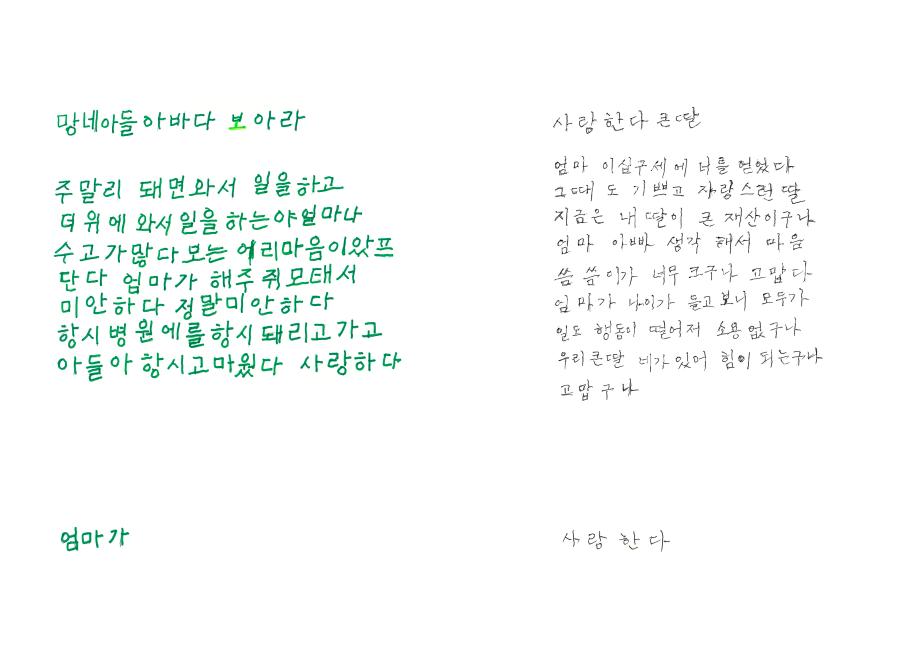 망네아들아바다 보아라
주말리 돼면와서 일을하고
뎌위에 와서일을하는야얼마나
수고가많다보는 에리마음이았프
단다 엄마가 해주쥐모태서
미안하다 정말미안하다
항시병원에를항시돼리고가고
아들아항시고마웠다 사랑하다
엄마가
사랑한다 큰딸
엄마 이십구세에 너를 얻었다
그때도 기쁘고 자랑스런 딸
지금은 내딸이 큰 재산이구나
엄마 아빠 생각 해서 마음
씀씀이가 너무 크구나 고맙다
엄마가 나이가 들고보니 모두가
일도 행동이 떨어저 소용없구나
우리큰딸 네가있어 힘이 되는구나
고맙구나
사랑한다